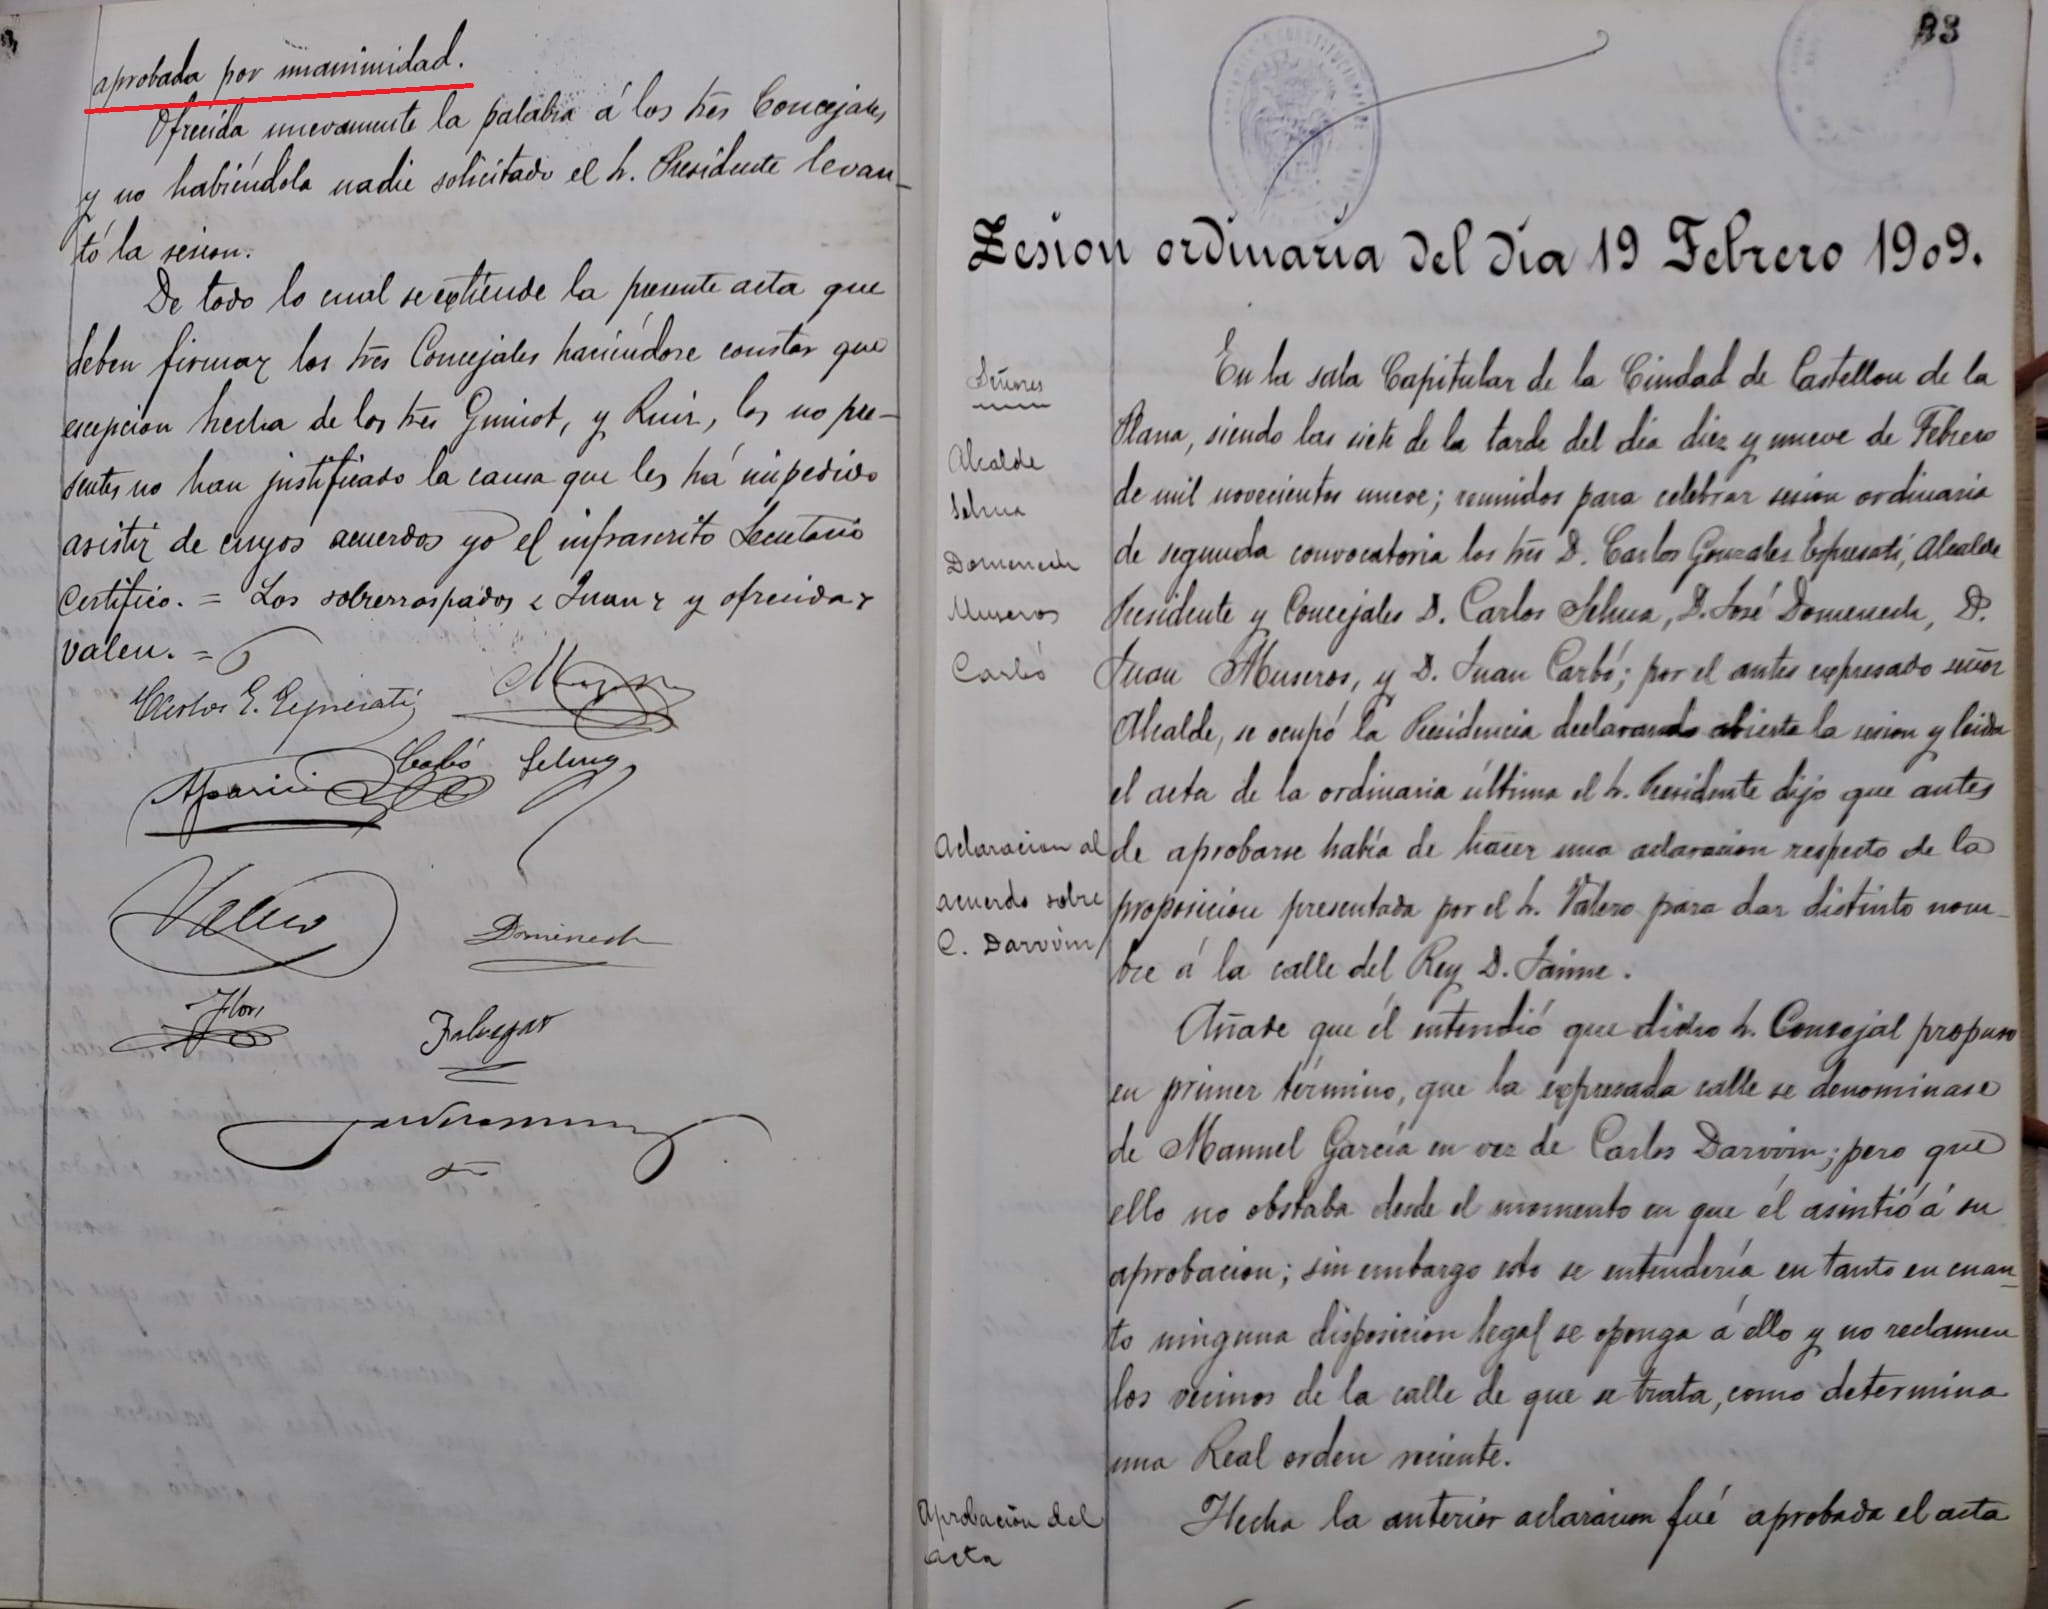 aprobada por unanimidad.
Ofrecida nuevamente la palabra á los Sres Concejales
y no habiéndola nadie solicitado el Sr. Presidente levan-
tó la sesion.
De todo lo cual se extiende la presente acta que
deben firmar los Sres Concejales haciéndose constar que
escepcion hecha de los Sres Gimeot, y Ruiz, los no pre-
sentes no han justificado la causa que les há impedido
asistir de cuyos acuerdos yo el infrascrito Secretario
Certifico. = Los sobrerraspados « Juan » y ofrecida »
valen. =
Carlos G. Espresati
Carbó Selma
Aparici
Valero
Domenech
Flors
Fabregat
83
Sesion ordinaria del dia 19 Febrero 1909.
Señores
Alcalde
Selma
Domenech
Museros
Carbó
En la sala Capitular de la Ciudad de Castellon de la
Plana, siendo las siete de la tarde del dia diez y nueve de Febrero
de mil novecientos nueve; reunidos para celebrar sesion ordinaria
de segunda convocatoria los Sres D. Carlos Gonzales Espresati, Alcalde
Presidente y Concejales D. Carlos Selma, D. José Domenech, D.
Juan Museros, y D. Juan Carbó; por el antes expresado señor
Alcalde, se ocupó la Presidencia declarando abierta la sesion y leida
el acta de la ordinaria última el Sr. Presidente dijo que antes
de aprobarse había de hacer una aclaracion respecto de la
proposicion presentada por el Sr. Valero para dar distinto nom-
bre á la calle del Rey D. Jaime.
Aclaracion al
acuerdo sobre
C. Darwin
Añade que él entendió que dicho Sr. Concejal propuso
en primer término, que la expresada calle se denominase
de Manuel García en vez de Carlos Darwin; pero que
ello no obstaba desde el momento en que él asintió á su
aprobacion; sin embargo esto se entendería en tanto en cuan-
to ninguna disposicion legal se oponga á ello y no reclamen
los vecinos de la calle de que se trata, como determina
una Real orden reciente.
Aprobación del
acta
Hecha la anterior aclaracion fué aprobada el acta